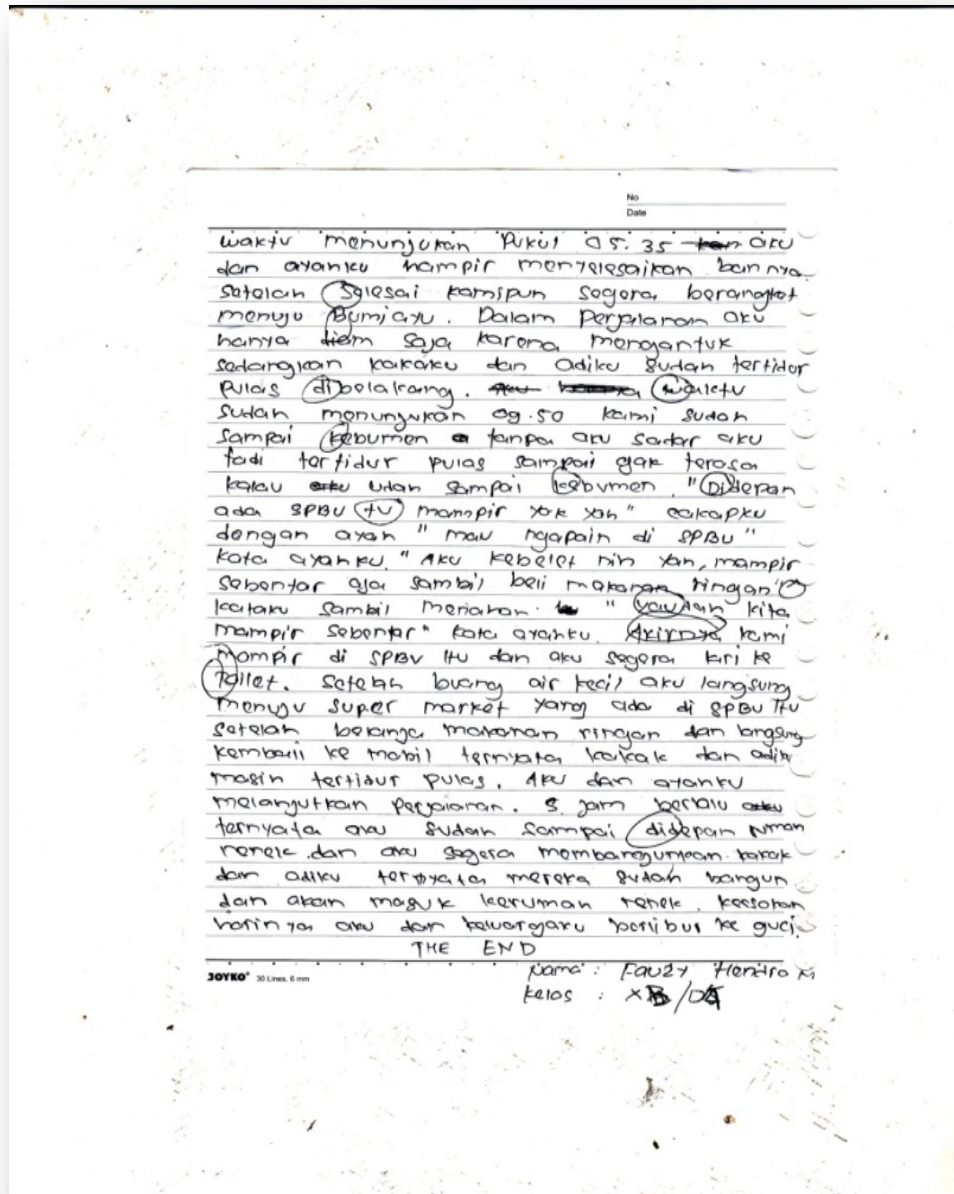 No
Date
waktu menunjukan Pukul 05.35 aku
dan ayahku hampir menyelesaikan ban nya
Setelah Selesai kamipun segera berangkat
menuju Bumiayu. Dalam Perjalanan aku
hanya diem saja karena mengantuk
sedangkan kakaku dan adiku sudah tertidur
Pulas dibelakang. waktu
sudah menunjukan 09.50 kami sudah
sampai kebumen tanpa aku sadar aku
tadi tertidur pulas sampai gak terasa
kalau udah sampai kebumen. "Didepan
ada SPBU tu mampir yok yah" cakapku
dengan ayah "mau ngapain di SPBU"
kata ayahku. "Aku kebelet nih yah, mampir
sebentar aja sambil beli makanan ringan"
kataku sambil menahan. "yaudah kita
mampir sebentar" kata ayahku. Akirnya kami
mampir di SPBU itu dan aku segera lari ke
toilet. Setelah buang air kecil aku langsung
menuju super market yang ada di SPBU itu
setelah belanja makanan ringan dan langsung
kembali ke mobil ternyata kakak dan adiku
masih tertidur pulas. Aku dan ayahku
melanjutkan perjalanan. 3 jam berlalu
ternyata aku sudah sampai didepan rumah
nenek dan aku segera membangunkan kakak
dan adiku ternyata mereka sudah bangun
dan akan masuk kerumah nenek. keesokan
harinya aku dan keluargaku berlibur ke guci.
THE END
JOYKO 30 Lines, 6 mm
Nama : Fauzy Hendro M
kelas : XB /